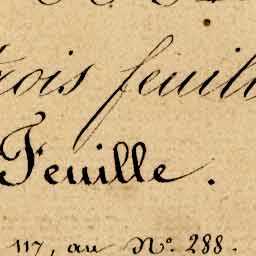 rois feuill
Feuille.
117, au Nº. 288.